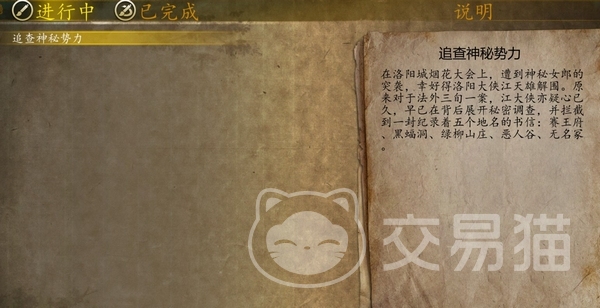 进行中
已完成
说明
追查神秘势力
追查神秘势力
在洛阳城烟花大会上，遭到神秘女郎的
突袭，幸好得洛阳大侠江天雄解围。原
来对于法外三旬一案，江大侠亦疑心已
久，早已在背后展开秘密调查，并拦截
到一封纪录着五个地名的书信：赛王府
、黑蝠洞、绿柳山庄、恶人谷、无名冢
。
交易猫